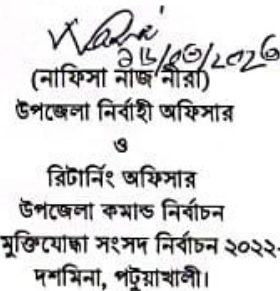 (নাফিসা নাজ নীরা)
উপজেলা নির্বাহী অফিসার
ও
রিটার্নিং অফিসার
উপজেলা কমান্ড নির্বাচন
মুক্তিযোদ্ধা সংসদ নির্বাচন ২০২২-
দশমিনা, পটুয়াখালী।